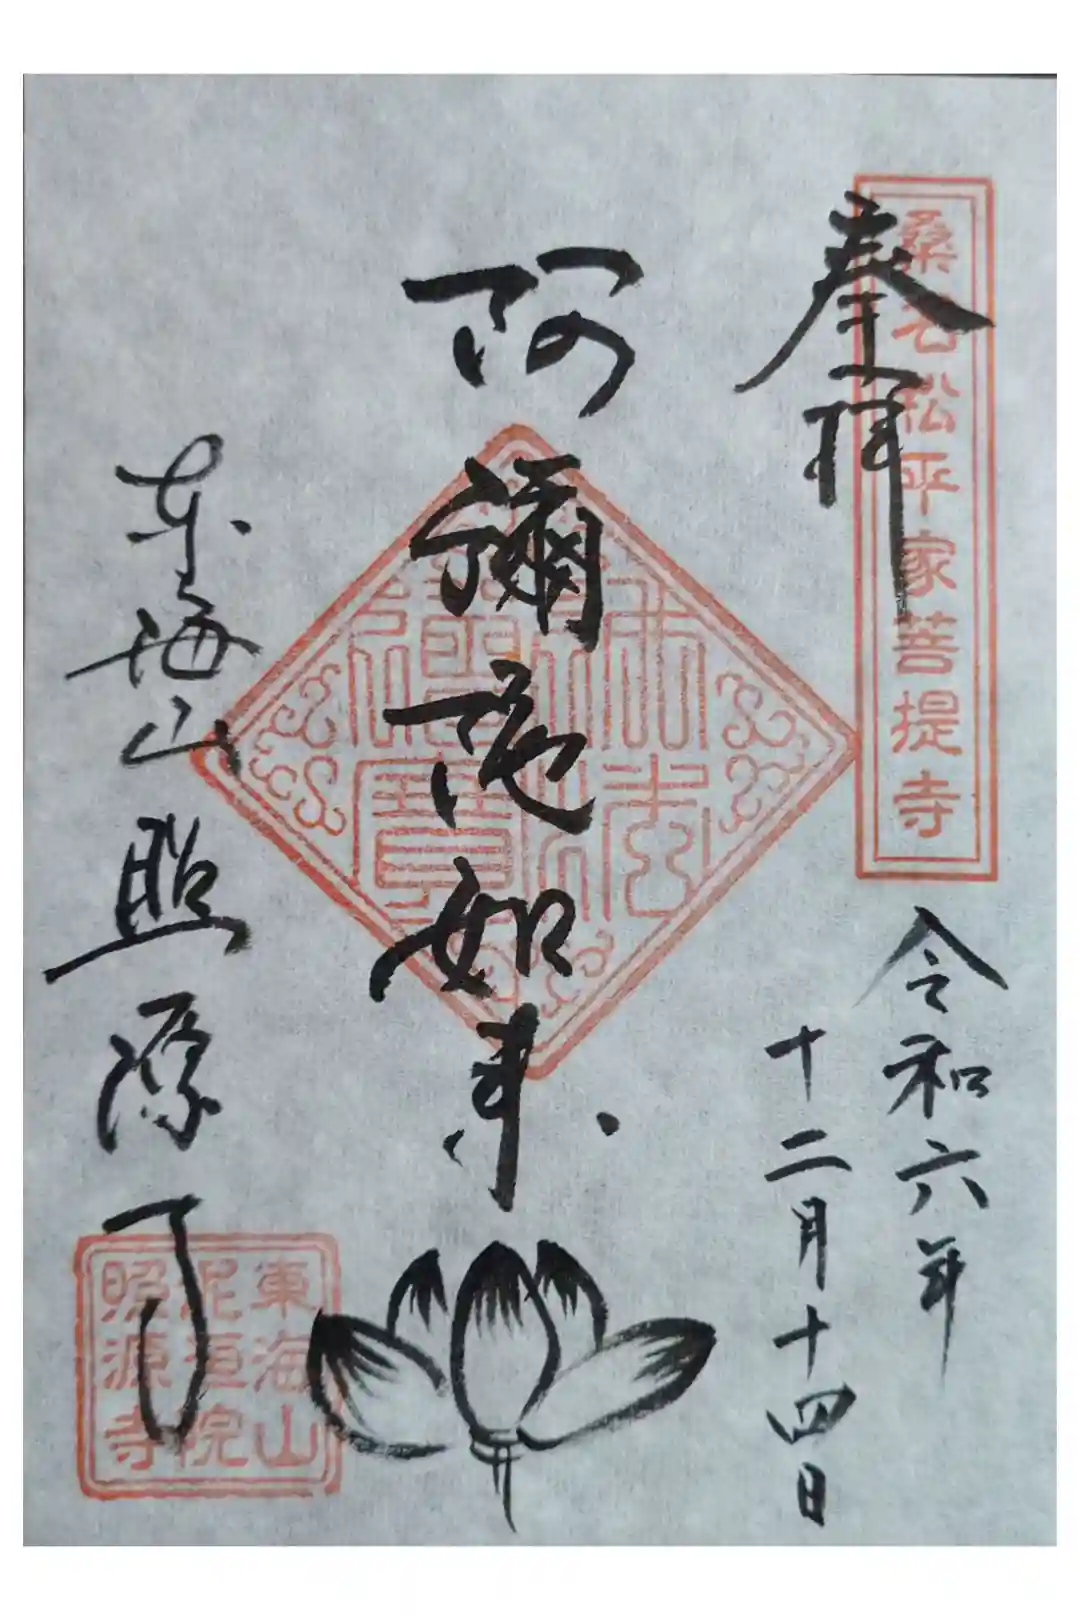 奉拝
桑名松平家菩提寺
令和六年
十二月十四日
阿彌陀如来
佛法僧寶
東海山照源寺
東海山
泥洹院
照源寺